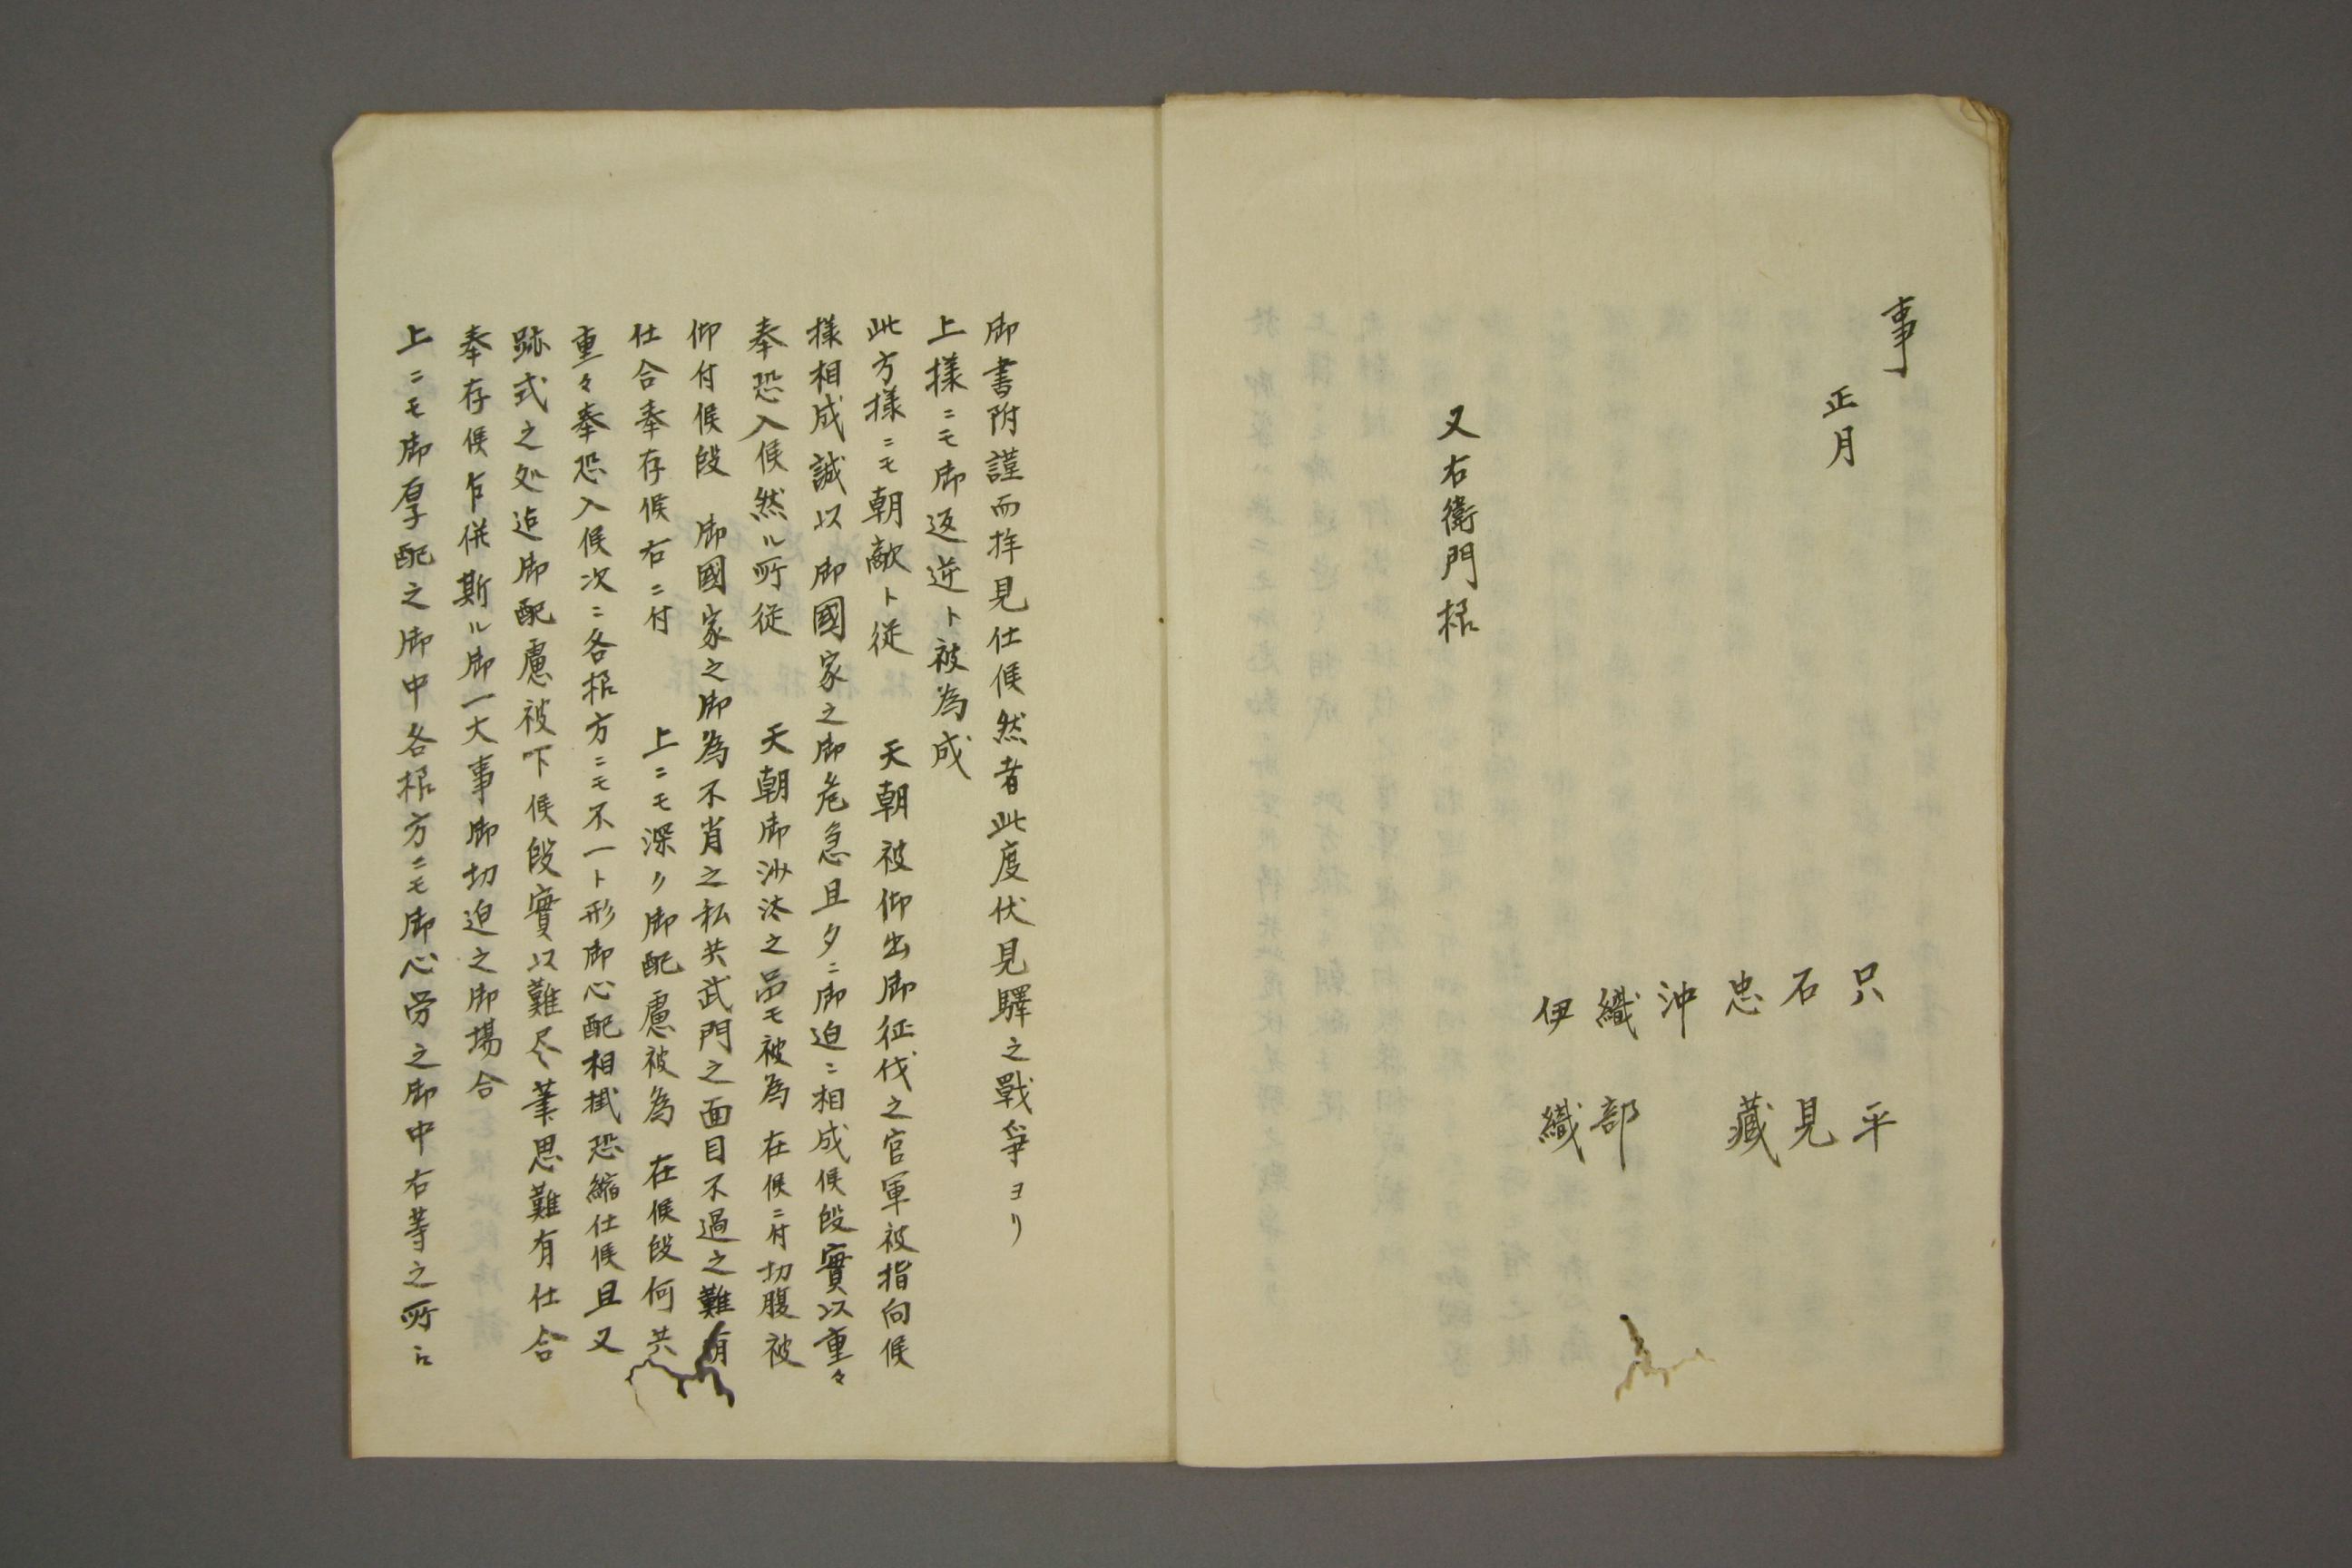 事
正月
只平
石見
忠藏
沖
織部
伊織
又右衛門様
御書附謹而拝見仕候然者此度伏見驛之戰爭ヨリ
上様ニモ御返逆ト被為成
天朝被仰出御征伐之官軍被指向候
此方様ニモ朝敵ト従
様相成誠以御國家之御危急且夕ニ御迫ニ相成候段實以重々
奉恐入候然ル所従 天朝御沙汰之品モ被為 在候ニ付切腹被
仰付候段 御國家之御為不肖之私共武門之面目不過之難有
仕合奉存候右ニ付 上ニモ深ク御配慮被為 在候段何共
重々奉恐入候次ニ各様方ニモ不一ト形御心配相掛恐縮仕候且又
跡式之処迠御配慮被下候段實以難尽筆思難有仕合
奉存候乍併斯ル御一大事御切迫之御場合
上ニモ御厚配之御中各様方ニモ御心労之御中右等之所ニ